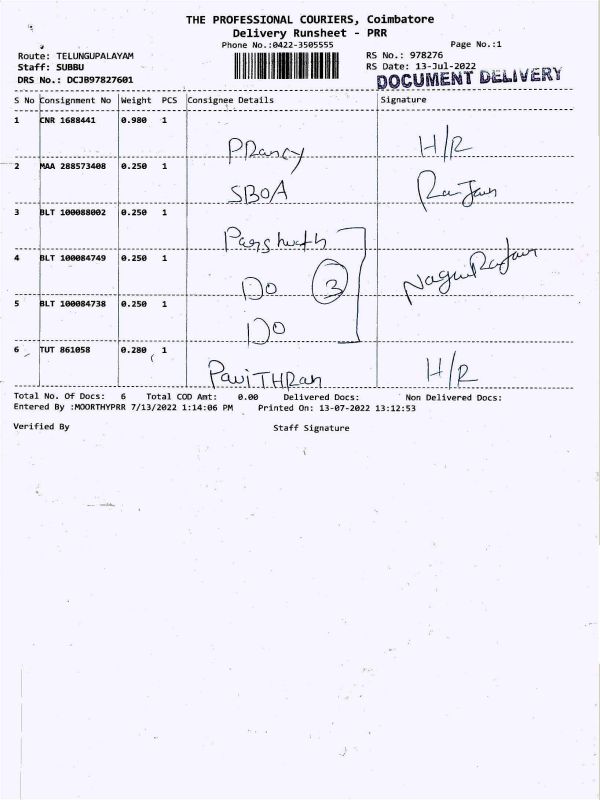 THE PROFESSIONAL COURIERS, Coimbatore
Delivery Runsheet - PRR
Phone No.:0422-3505555 Page No.:1
Route: TELUNGUPALAYAM RS No.: 978276
Staff: SUBBU RS Date: 13-Jul-2022
DRS No.: DCJB97827601 DOCUMENT DELIVERY
S No Consignment No Weight PCS Consignee Details Signature
1 CNR 1688441 0.980 1
PRancy H/R
2 MAA 288573408 0.250 1
SBOA RanJan
3 BLT 100088002 0.250 1
Parshwath
4 BLT 100084749 0.250 1
DO 3 NaguRajan
5 BLT 100084738 0.250 1
DO
6 TUT 861058 0.280 1
PaviTHRan H/R
Total No. Of Docs: 6 Total COD Amt: 0.00 Delivered Docs: Non Delivered Docs:
Entered By :MOORTHYPRR 7/13/2022 1:14:06 PM Printed On: 13-07-2022 13:12:53
Verified By Staff Signature